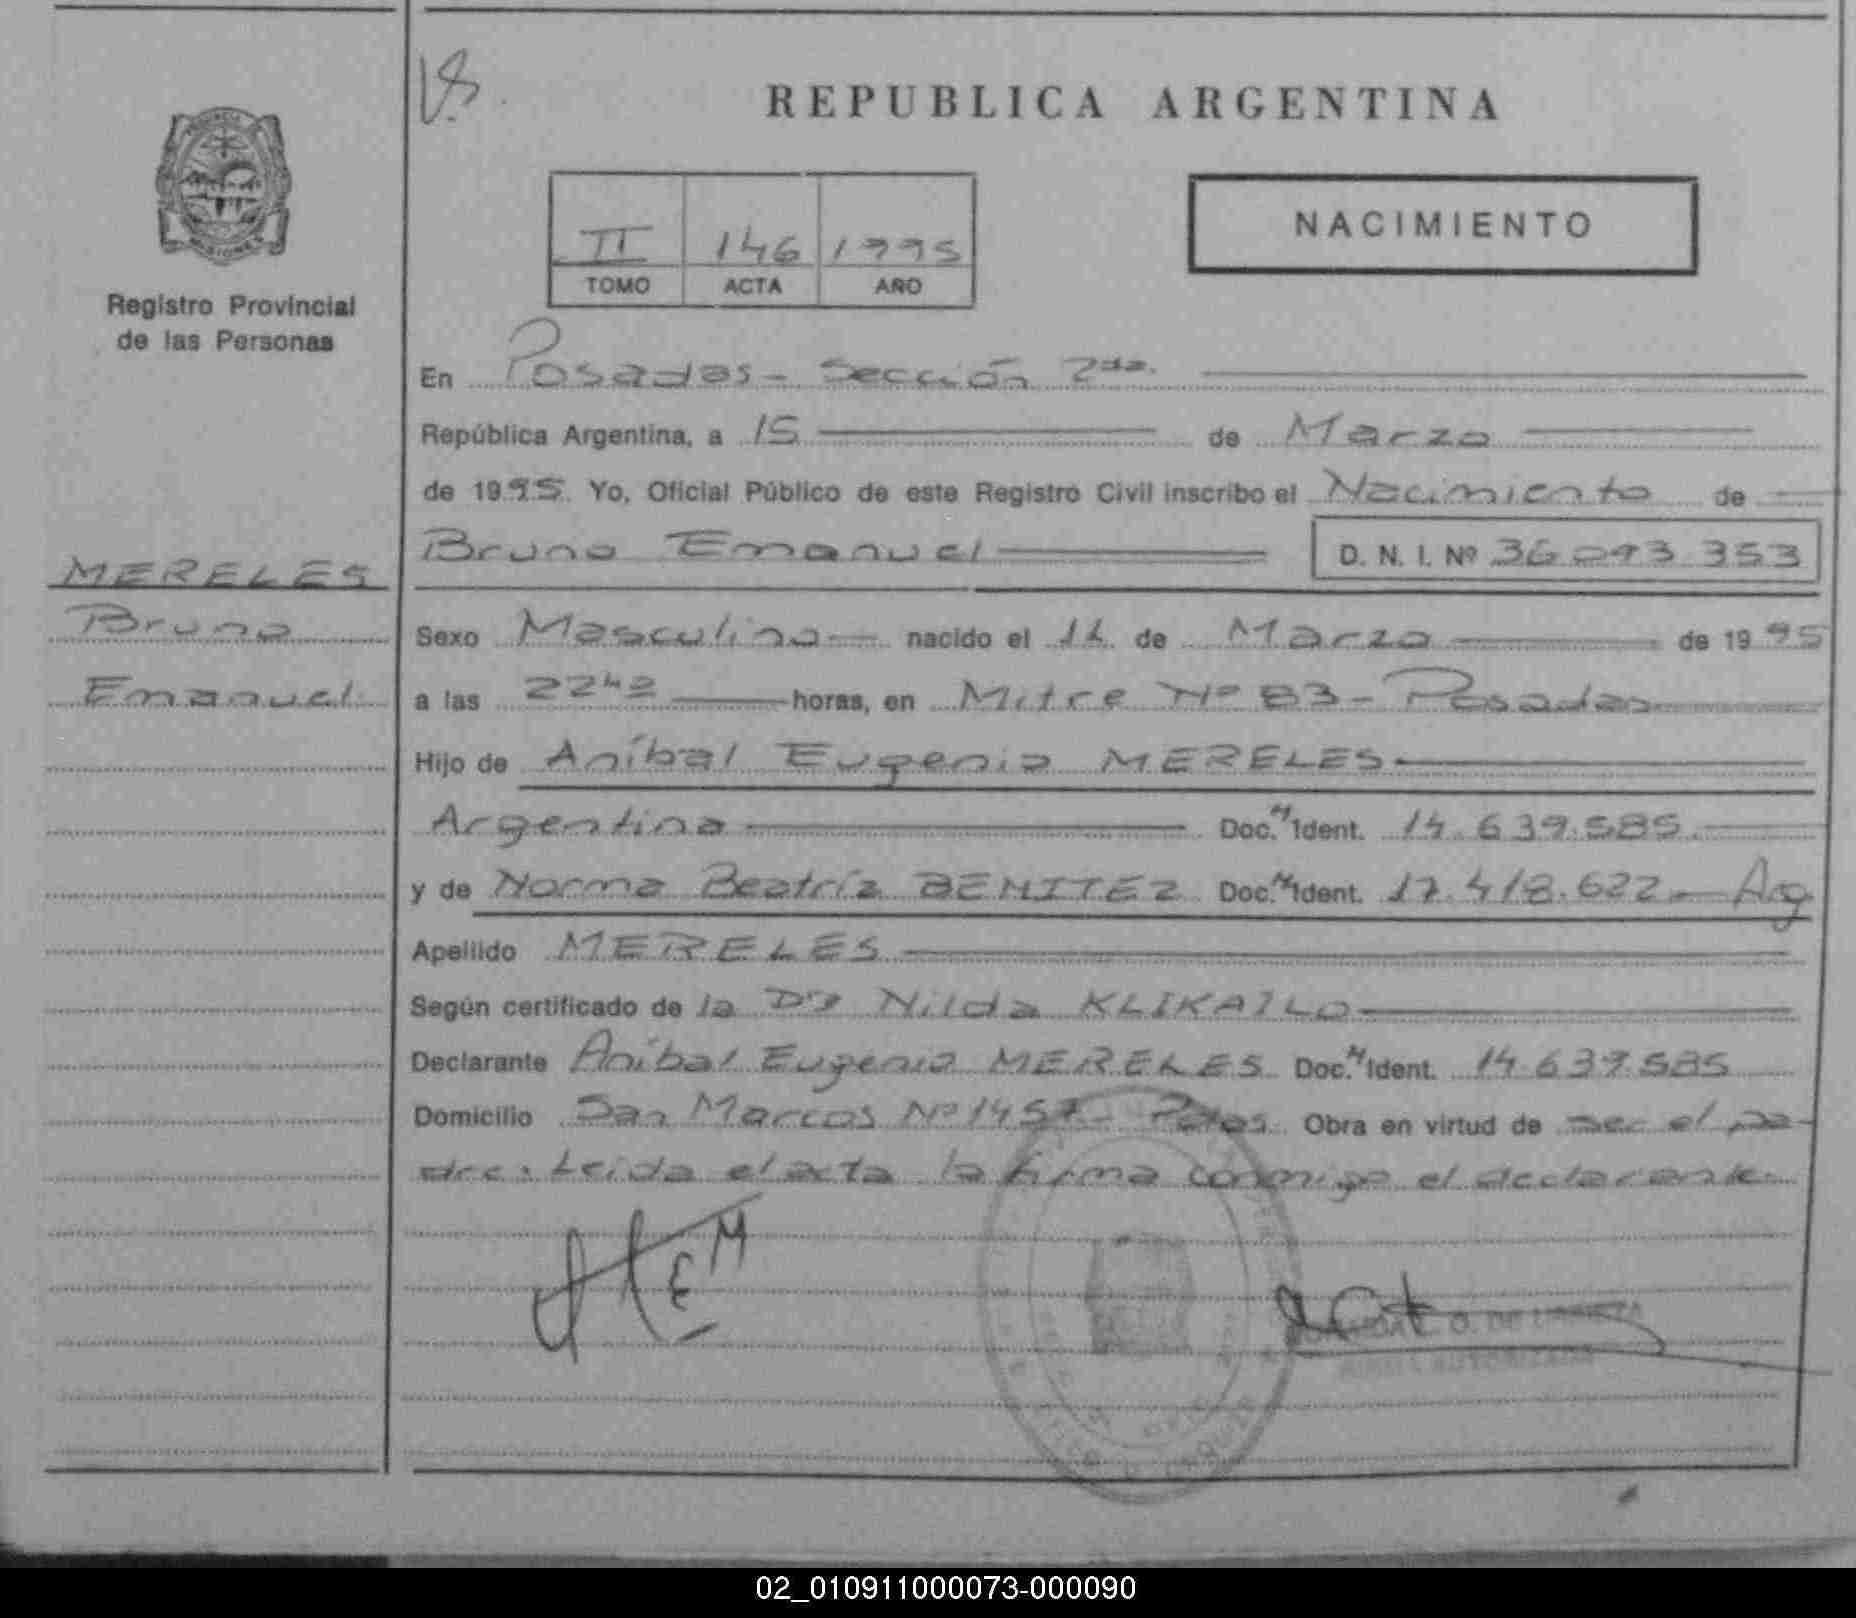 REPUBLICA ARGENTINA
II 146 1995
TOMO ACTA AÑO
NACIMIENTO
PROVINCIA
MISIONES
Registro Provincial
de las Personas
MERELES
Bruno
Emanuel
En Posadas - Sección 2da.
República Argentina, a 15 de Marzo
de 1995 Yo, Oficial Público de este Registro Civil inscribo el Nacimiento de
Bruno Emanuel D. N. I. Nº 36.093.353
Sexo Masculino nacido el de Marzo de 1995
a las 22 42 horas, en Mitre Nº 83 - Posadas
Hijo de Aníbal Eugenio MERELES
Argentino Doc. Ident. 14.639.585
y de Norma Beatríz BENITEZ Doc. Ident. 17.418.622 - Arg
Apellido MERELES
Según certificado de la Dra Nilda KLIKAILO
Declarante Aníbal Eugenio MERELES Doc. Ident. 14.639.585
Domicilio San Marcos Nº 1457 - Pdas. Obra en virtud de ser el pa-
dre: Leída el acta la firma conmigo el declarante.
O. DE
AUTORIZADA
02_010911000073-000090